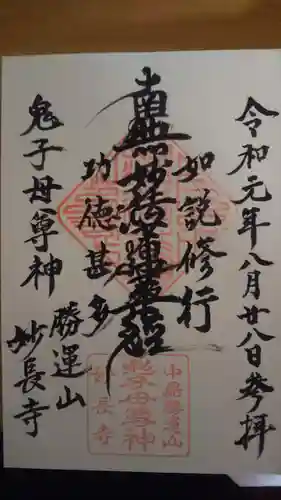 令和元年八月廿八日参拝
如説修行
南無妙法蓮華経
功徳甚多
鬼子母尊神
勝運山
妙長寺
鬼子母尊神
長寺